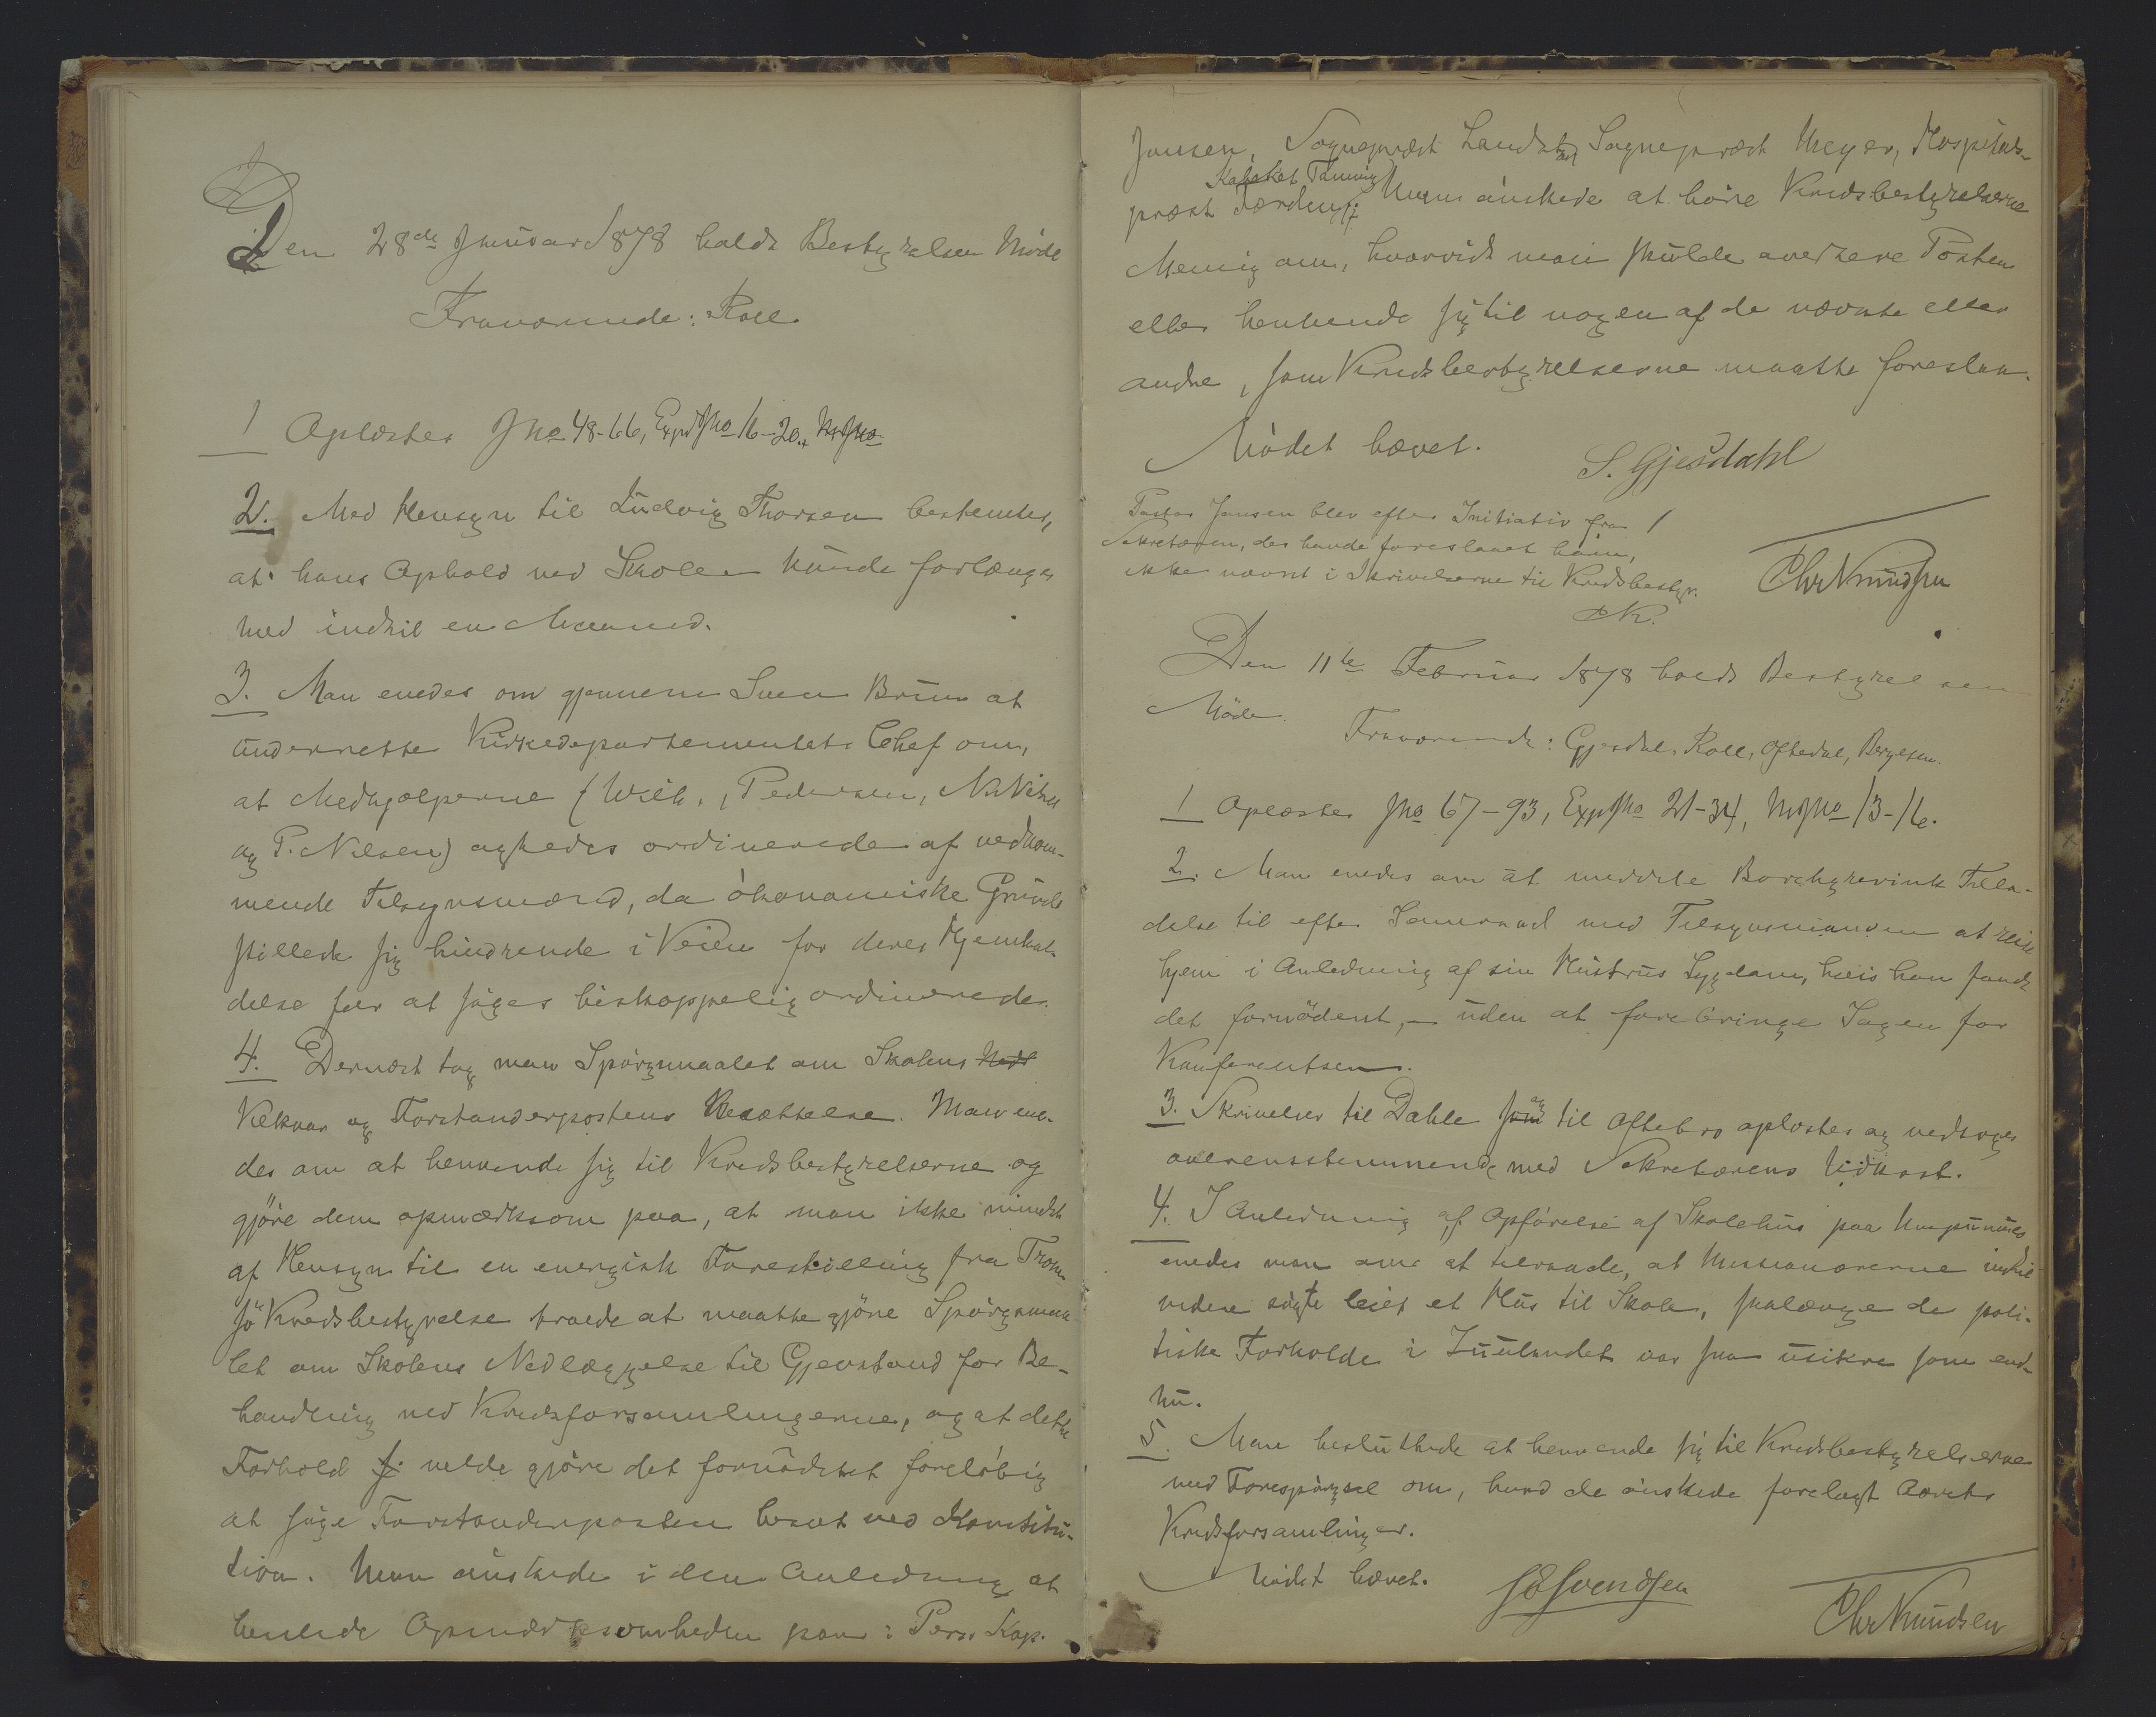 Den 28de Januar 1878 holdt Bestyrelsen Möde
Fraværende: Roll.
1 Oplæstes Jno 48-66, ExpJno 16-20.
2. Med Hensyn til Ludvig Thorsen bestemtes,
at hans Ophold ved Skolen kunde forlænges
med indtil en Maaned.
3. Man enedes om gjennem Sven Brun at
underrette Kirkedepartementets Chef om,
at Medhjælperne (Wilh. Pedersen, N. Nilsen
og P. Nilsen) agtedes ordinerede af vedkom-
mende Tilsynsmænd, da ökonomiske Grunde
stillede sig hindrende i Veien for deres Hjemkal-
delse for at söges biskoppelig ordinerede.
4. Dernæst tog man Spörgsmaalet om Skolens
Vilkaar og Forstanderpostens Besættelse. Man ene-
des om at henvende sig til Kredsbestyrelserne og
gjöre dem opmærksom paa, at man ikke mindst
af Hensyn til en energisk Forestilling fra Trom-
sö Kredsbestyrelse troede at maatte gjöre Spörgsmaa-
let om Skolens Nedlæggelse til Gjenstand for Be-
handling ved Kredsforsamlingerne, og at dette
Forhold vilde gjöre det fornödent foreløbig
at söge Forstanderposten besat ved Konstitu-
tion. Man önskede i den Anledning at
henlede Opmærksomheden paa: Pers. Kap.
Jansen, Sogneprest Landstad, Sogneprest Meyer, Hospitals-
præst Færden, Kateket Tanning
Man önskede at höre Kredsbestyrelserne
Mening om, hvorvidt man skulde avertere Posten
eller henvende sig til nogen af de nævnte eller
andre, som Kredsbestyrelserne maatte foreslaa.
Mödet hævet.
S. Gjesdahl
Pastor Jansen blev efter Initiativ fra
Sekretæren, der havde foreslaaet ham,
ikke nævnt i Skrivelserne til Kredsbestyr.
CK.
Chr Knudsen
Den 11te Februar 1878 holdt Bestyrelsen
Möde.
Fraværende: Gjesdal, Roll, Oftedal, Bergesen.
1 Oplæstes Jno 67-93, ExpJno 21-34, MJno 13-16.
2. Man enedes om at meddele Borchgrevink Tilla-
delse til efter Samraad med Tilsynsmanden at reise
hjem i Anledning af sin Hustrus Sygdom, hvis han fandt
det fornödent, – uden at forebringe Sagen for
Konferentsen.
3. Skrivelser til Dahle og til Oftebro oplæstes og vedtoges
overensstemmende med Sekretærens Udkast.
4. I Anledning af Opförelse af Skolehus paa Umpumulo
enedes man om at tilraade, at Missionærerne indtil
videre sögte leiet et Hus til Skole, saalænge de poli-
tiske Forholde i Zululandet var saa usikre som end-
nu.
5. Man besluttede at henvende sig til Kredsbestyrelserne
med Forespörgsel om, hvad de önskede forelagt Aarets
Kredsforsamlinger.
Mödet hævet.
Svendsen
Chr Knudsen